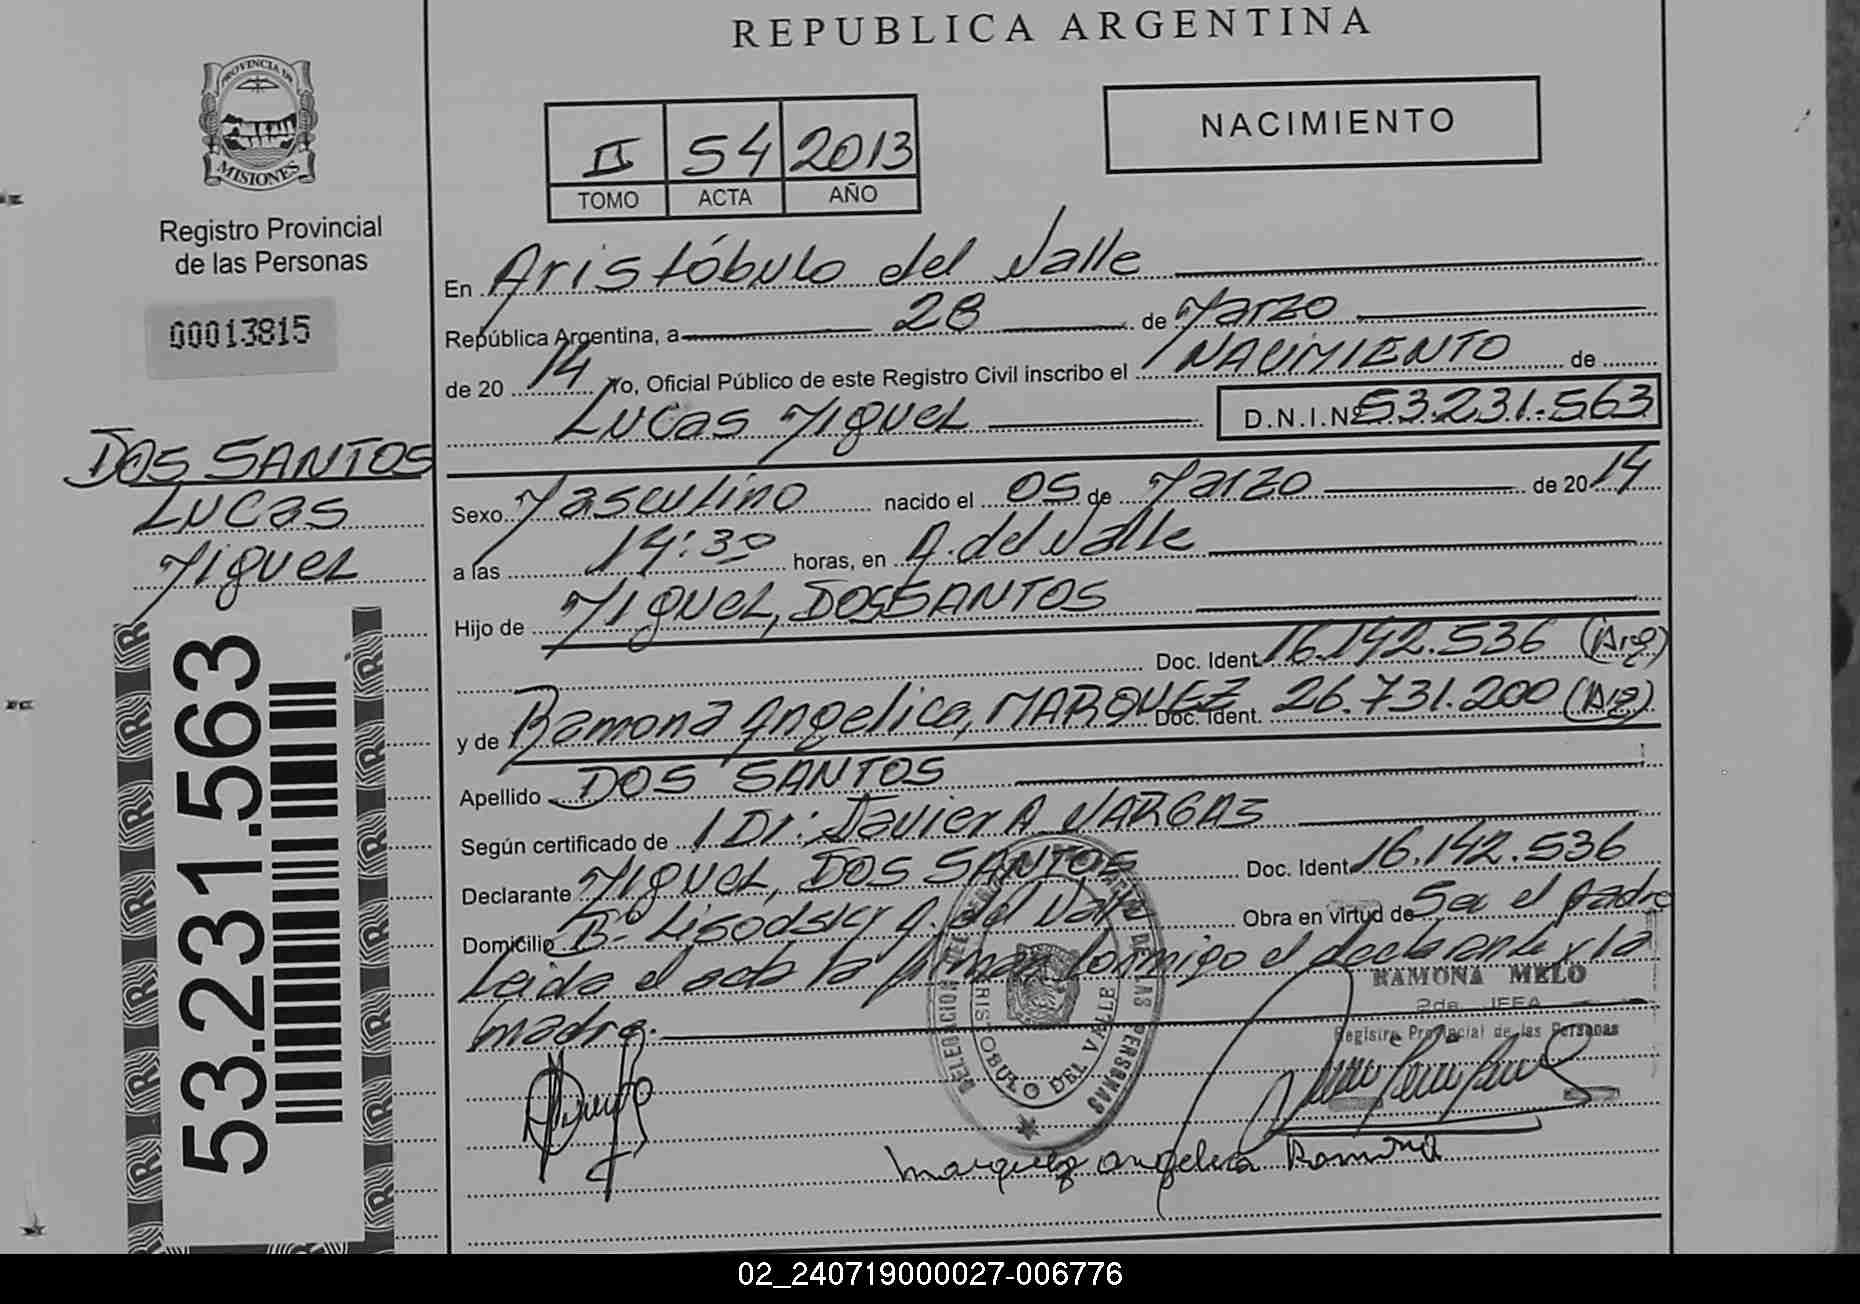 REPUBLICA ARGENTINA
PROVINCIA DE
MISIONES
Registro Provincial
de las Personas
00013815
II 54 2013
TOMO ACTA AÑO
NACIMIENTO
En Aristóbulo del Valle
República Argentina, a 28 de Marzo
de 20 14 Yo, Oficial Público de este Registro Civil inscribo el NACIMIENTO de
Lucas Miguel D.N.I.Nº 53.231.563
DOS SANTOS
Lucas
Miguel
Sexo Masculino nacido el 05 de Marzo de 20 14
a las 14:30 horas, en A. del Valle
Hijo de Miguel, DOS SANTOS
Doc. Ident. 16.142.536 (Arg)
y de Ramona Angelica, MARQUEZ Doc. Ident. 26.731.200 (Arg)
Apellido DOS SANTOS
Según certificado de Dr: Javier A VARGAS
Declarante Miguel, DOS SANTOS Doc. Ident. 16.142.536
Domicilio Bº A. del Valle Obra en virtud de Ser el padre
Leida el acta la firman conmigo el declarante y la
madre.
53.231.563
RAMONA MELO
2da JEFA
Registro Provincial de las Personas
DELEGACION DE LAS PERSONAS
ARISTOBULO DEL VALLE
Marquez Angelica Ramona
02_240719000027-006776